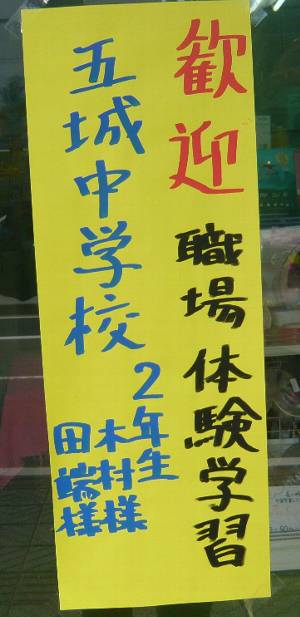 歓迎 職場体験学習
五城中学校 2年生
木村様
田端様